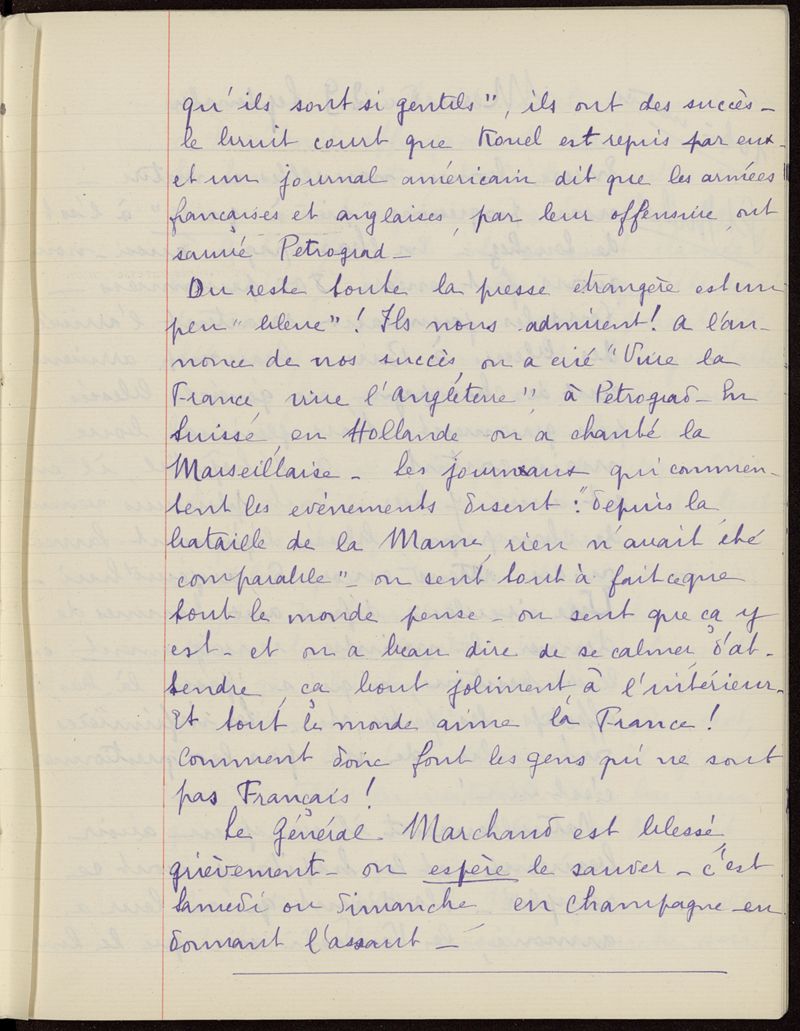 qu'ils sont si gentils", ils ont des succès -
le bruit court que Kovel est repris par eux -
et un journal américain dit que les armées
françaises et anglaises, par leur offensive, ont
sauvé Petrograd -
Du reste toute la presse étrangère est un
peu "bleue"! Ils nous admirent! A l'an-
nonce de nos succès, on a crié "Vive la
France vive l'Angléterre", à Petrograd - En
Suisse, en Hollande on a chanté la
Marseillaise - les journaux qui commen-
tent les evénements disent : "depuis la
bataille de la Marne, rien n'avait été
comparable" - on sent tout à fait ce que
tout le monde pense - on sent que ça y
est - et on a beau dire de se calmer, d'at-
tendre, ça bout joliment à l'intérieur -
Et tout le monde aime la France!
Comment donc font les gens qui ne sont
pas Français!
Le Général Marchand est blessé
grièvement - on espère le sauver - c'est
Samedi ou dimanche, en Champagne en
donnant l'assaut -